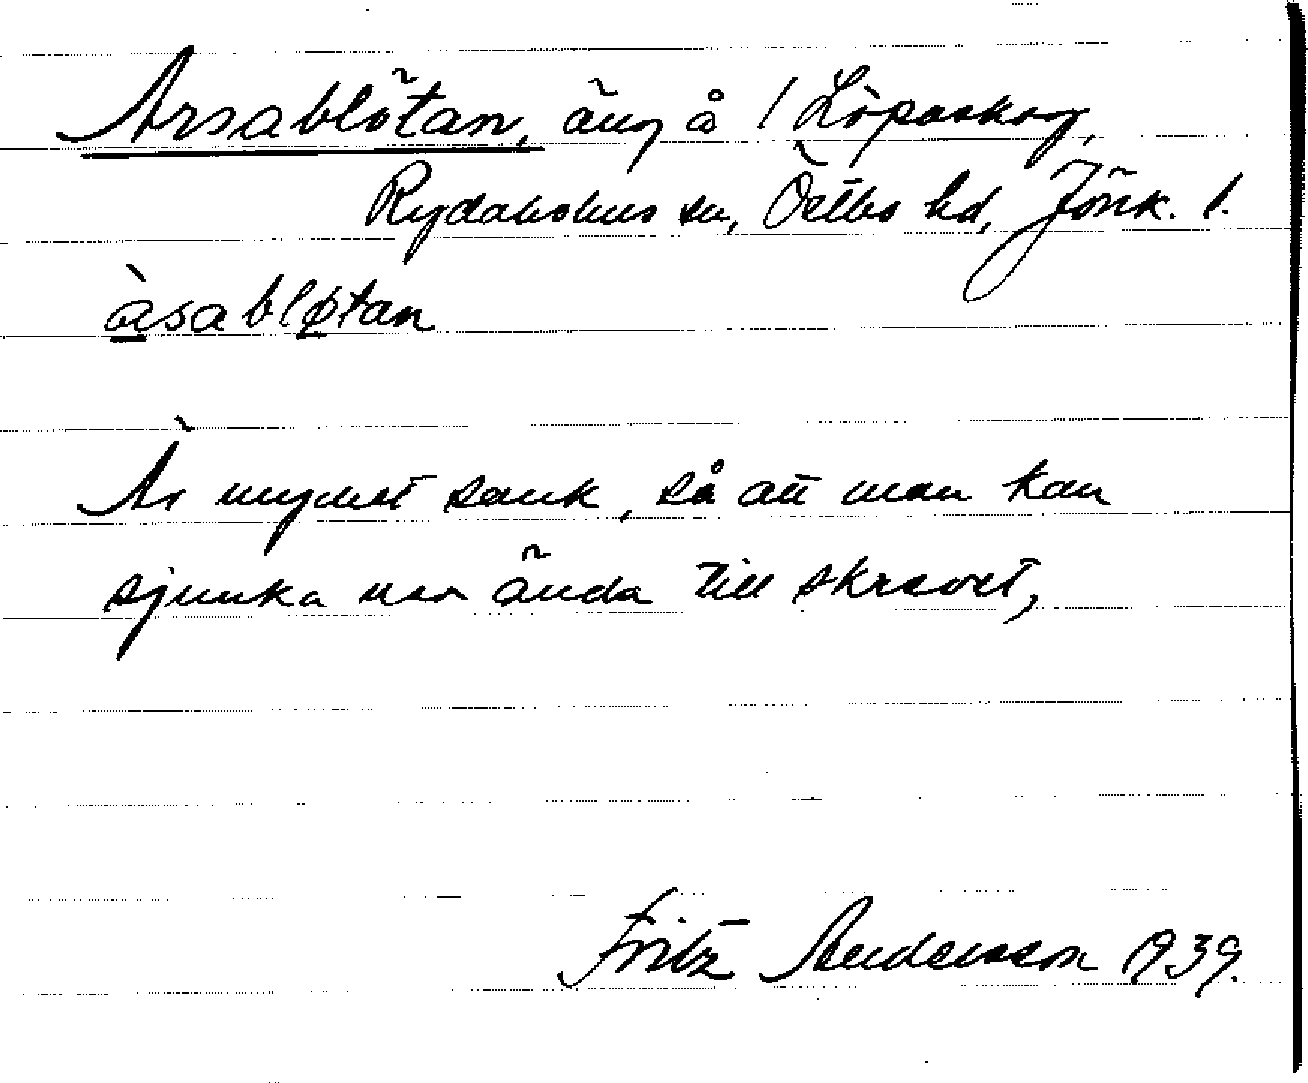 Arsablötan, äng å 1 Löpaskog,
Rydaholms sn, Östbo hd, Jönk. l.
àsabløtan
Är mycket sank, så att man kan
sjunka ner ända till skrevet,
Fritz Andersson 1939.